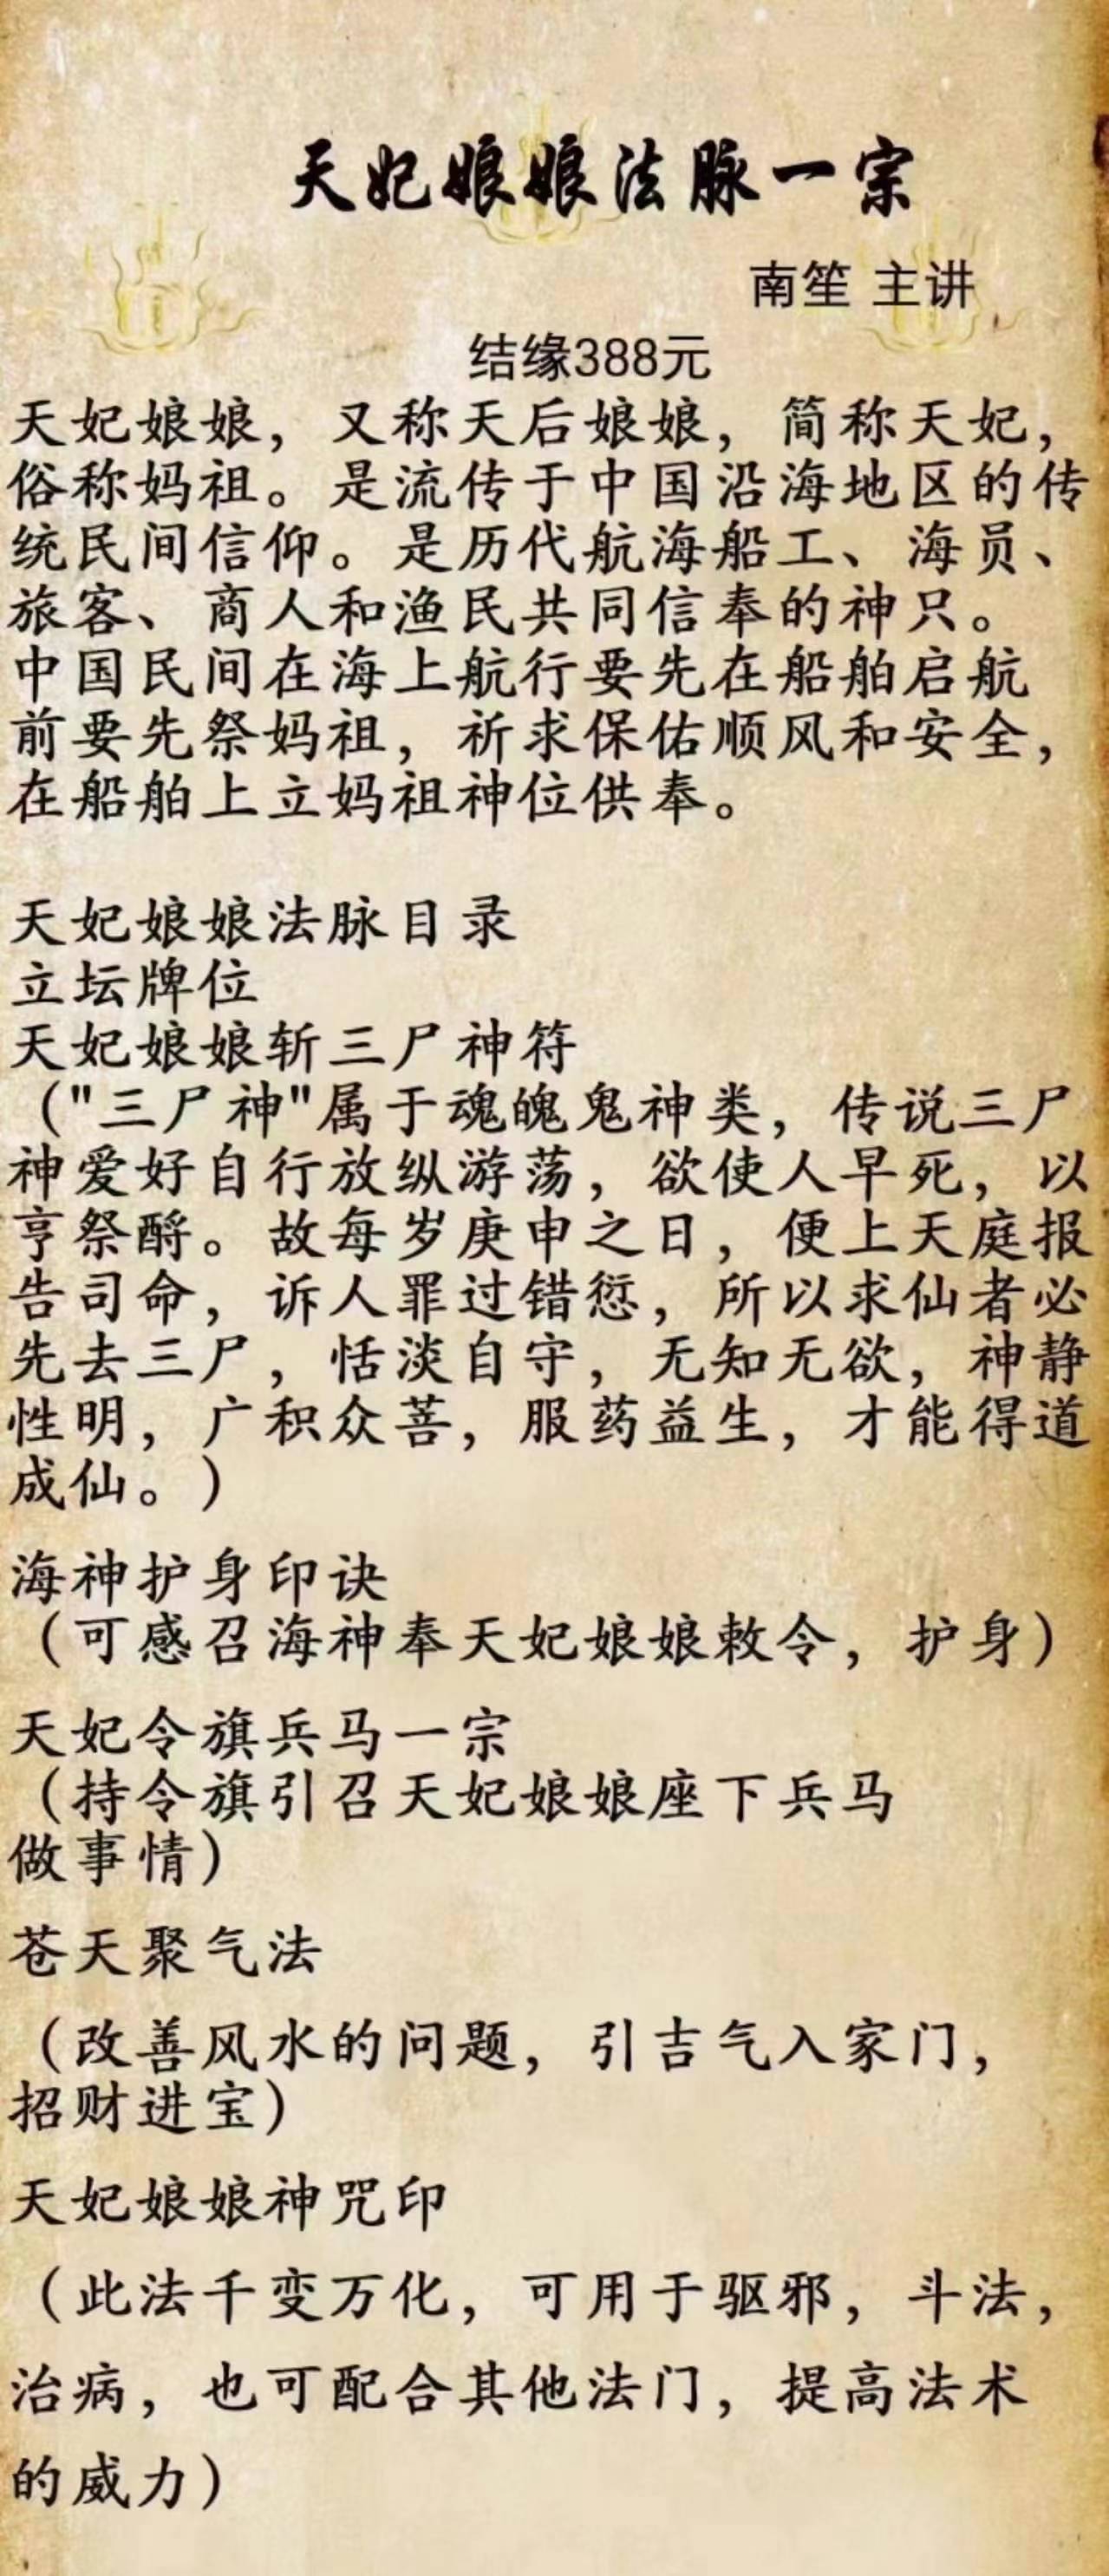 天妃娘娘法脉一宗
南笙 主讲
结缘388元
天妃娘娘，又称天后娘娘，简称天妃，
俗称妈祖。是流传于中国沿海地区的传
统民间信仰。是历代航海船工、海员、
旅客、商人和渔民共同信奉的神只。
中国民间在海上航行要先在船舶启航
前要先祭妈祖，祈求保佑顺风和安全，
在船舶上立妈祖神位供奉。
天妃娘娘法脉目录
立坛牌位
天妃娘娘斩三尸神符
（"三尸神"属于魂魄鬼神类，传说三尸
神爱好自行放纵游荡，欲使人早死，以
亨祭酹。故每岁庚申之日，便上天庭报
告司命，诉人罪过错愆，所以求仙者必
先去三尸，恬淡自守，无知无欲，神静
性明，广积众菩，服药益生，才能得道
成仙。）
海神护身印诀
（可感召海神奉天妃娘娘敕令，护身）
天妃令旗兵马一宗
（持令旗引召天妃娘娘座下兵马
做事情）
苍天聚气法
（改善风水的问题，引吉气入家门，
招财进宝）
天妃娘娘神咒印
（此法千变万化，可用于驱邪，斗法，
治病，也可配合其他法门，提高法术
的威力）